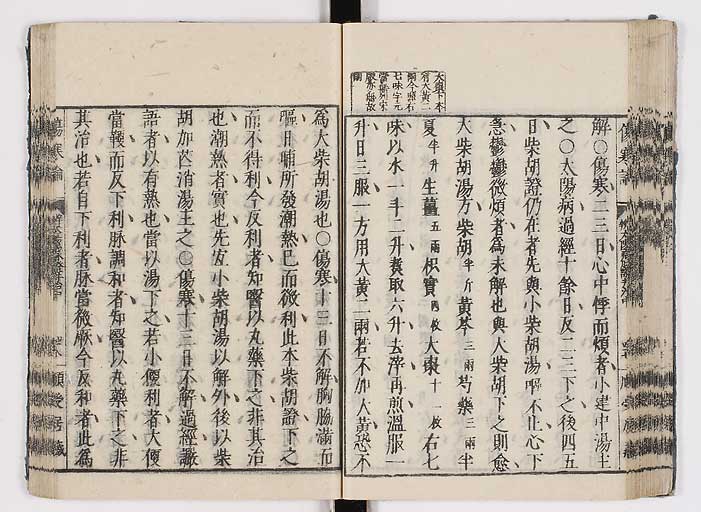 解○傷寒二三日心中悸而煩者小建中湯主
之○太陽病過經十餘日反二三下之後四五
日柴胡證仍在者先與小柴胡湯嘔不止心下
急鬱鬱微煩者為未解也與大柴胡下之則愈
大柴胡湯方柴胡半斤黃芩三兩芍藥三兩半
夏半升生薑五兩枳實四枚大棗十一枚右七
味以水一斗二升煑取六升去滓再煎溫服一
升日三服一方用大黃二兩若不加大黃恐不
為大柴胡湯也○傷寒十三日不解胸脇滿而
嘔日晡所發潮熱已而微利此本柴胡證下之
而不得利今反利者知醫以丸藥下之非其治
也潮熱者實也先宜小柴胡湯以解外後以柴
胡加芒消湯主之○傷寒十三日不解過經讝
語者以有熱也當以湯下之若小便利者大便
當鞕而反下利脉調和者知醫以丸藥下之非
其治也若自下利者脉當微厥今反和者此為
傷寒論